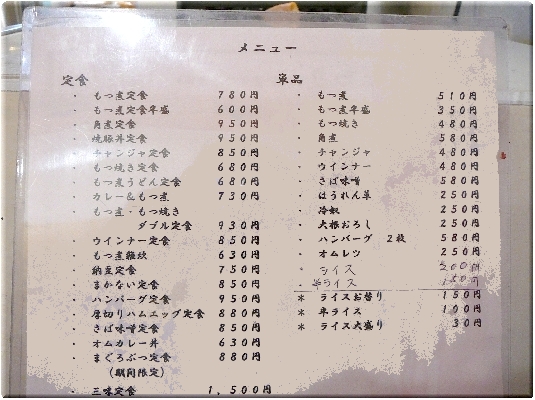 メニュー
定食
・ もつ煮定食 780円
・ もつ煮定食半盛 600円
・ 角煮定食 950円
・ 焼豚丼定食 950円
・ チャンジャ定食 850円
・ もつ焼き定食 680円
・ もつ煮うどん定食 680円
・ カレー&もつ煮 730円
・ もつ煮・もつ焼き
ダブル定食 930円
・ ウインナー定食 850円
・ もつ煮雑炊 630円
・ 納豆定食 750円
・ まかない定食 850円
・ ハンバーグ定食 950円
・ 厚切りハムエッグ定食 880円
・ さば味噌定食 850円
・ オムカレー丼 630円
・ まぐろぶつ定食 880円
(期間限定)
・ 三味定食 1,500円
単品
・ もつ煮 510円
・ もつ煮半盛 350円
・ もつ焼き 480円
・ 角煮 580円
・ チャンジャ 480円
・ ウインナー 480円
・ さば味噌 580円
・ ほうれん草 250円
・ 冷奴 250円
・ 大根おろし 250円
・ ハンバーグ 2枚 580円
・ オムレツ 250円
・ ライス 200円
・ 半ライス 150円
* ライスお替り 150円
* 半ライス 100円
* ライス大盛り 30円